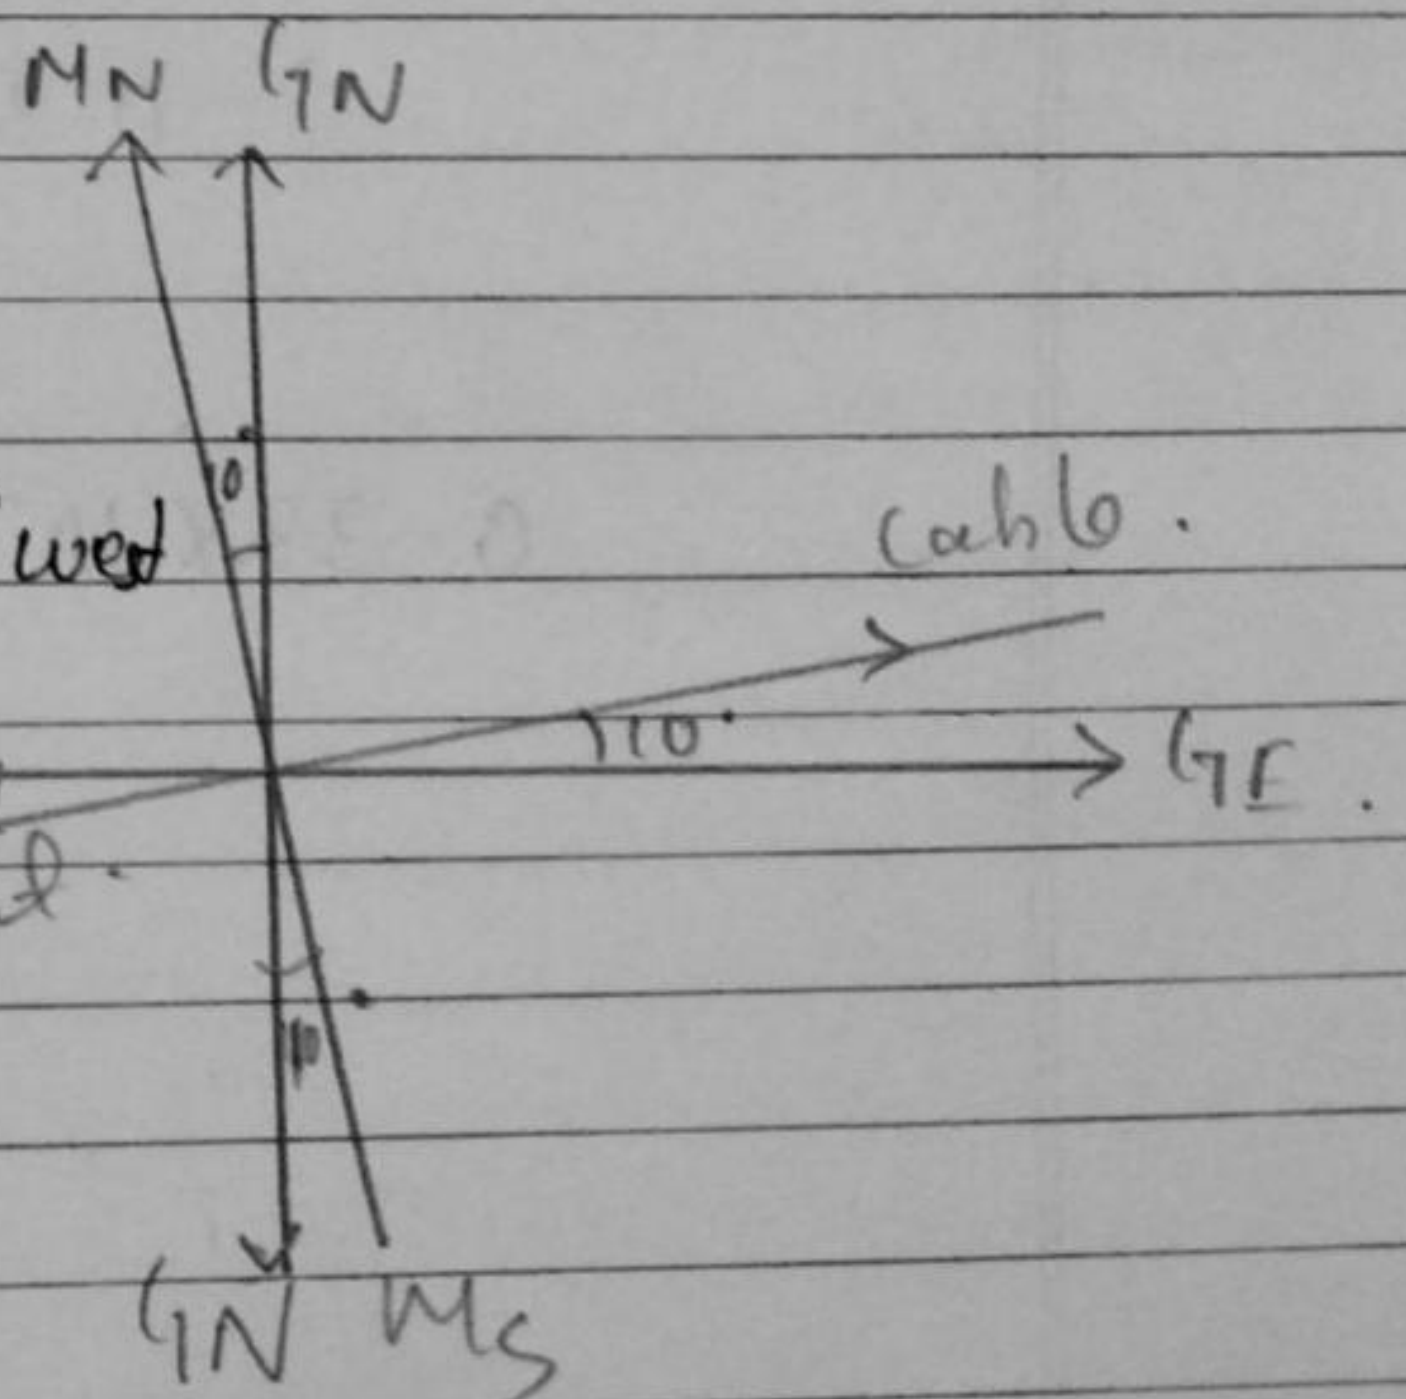 MN GN
10
west
Cable.
10°
GE.
10
GN MS